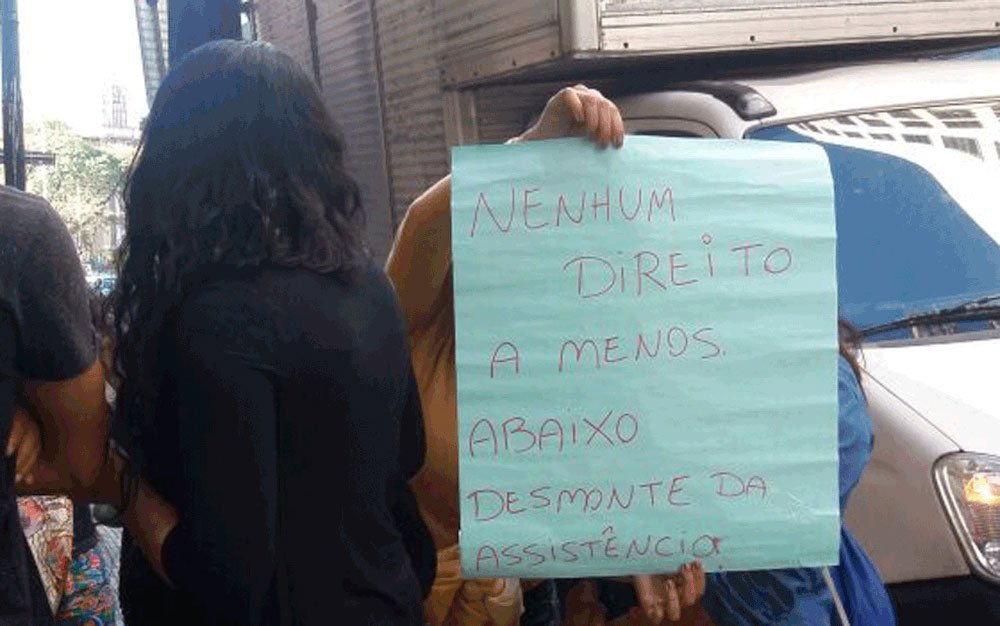 NENHUM
DIREITO
A MENOS.
ABAIXO
DESMONTE DA
ASSISTÊNCIA!